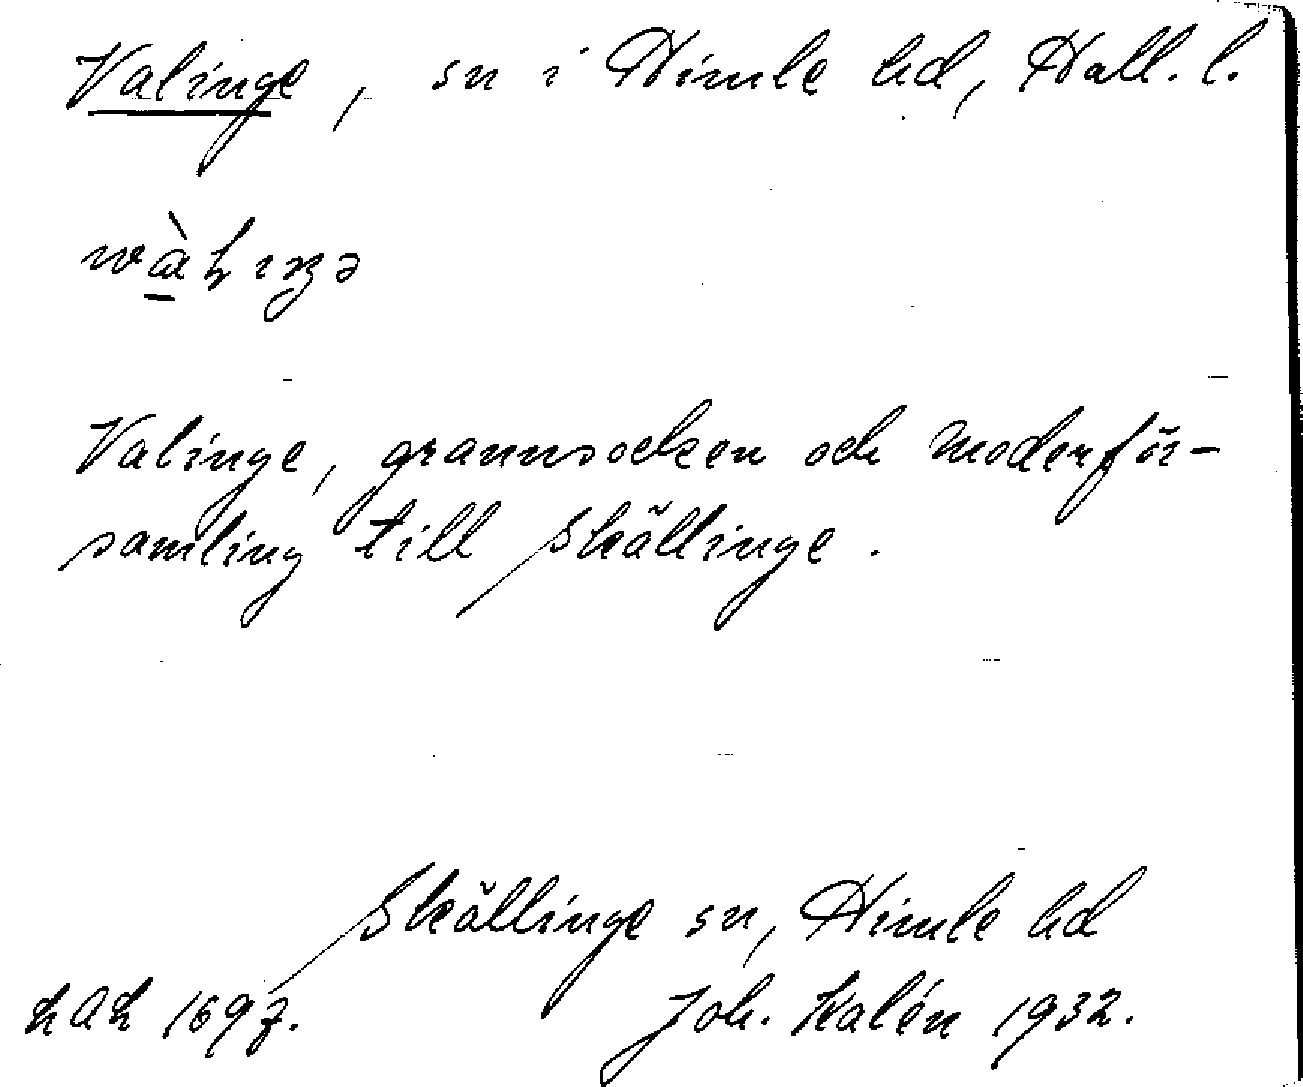 Valinge, sn i Himle hd, Hall. l.
Valinge, grannsocken och moderför-
samling till Skällinge.
Skällinge sn, Himle hd
1697. Joh. Kalén 1932.